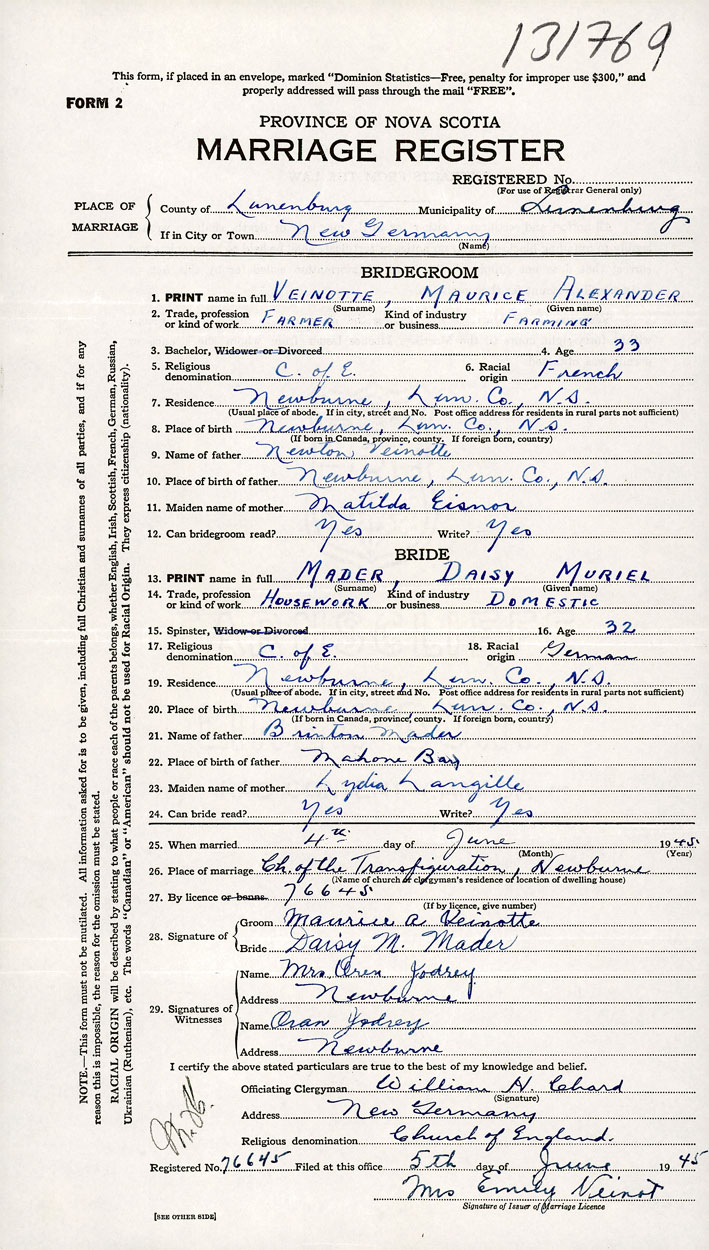 131769
This form, if placed in an envelope, marked "Dominion Statistics—Free, penalty for improper use $300," and
properly addressed will pass through the mail "FREE".
FORM 2
PROVINCE OF NOVA SCOTIA
MARRIAGE REGISTER
REGISTERED No.
(For use of Registrar General only)
PLACE OF MARRIAGE
County of Lunenburg Municipality of Lunenburg
If in City or Town New Germany
(Name)
BRIDEGROOM
1. PRINT name in full VEINOTTE, MAURICE ALEXANDER
(Surname) (Given name)
2. Trade, profession or kind of work FARMER Kind of industry or business. FARMING
3. Bachelor, Widower or Divorced 4. Age 33
5. Religious denomination C. of E. 6. Racial origin French
7. Residence Newburne, Lun. Co., N.S.
(Usual place of abode. If in city, street and No. Post office address for residents in rural parts not sufficient)
8. Place of birth Newburne, Lun. Co., N.S.
(If born in Canada, province, county. If foreign born, country)
9. Name of father Newton Veinotte
10. Place of birth of father Newburne, Lun. Co., N.S.
11. Maiden name of mother Matilda Eisnor
12. Can bridegroom read? Yes Write? Yes
BRIDE
13. PRINT name in full MADER, DAISY MURIEL
(Surname) (Given name)
14. Trade, profession or kind of work HOUSEWORK Kind of industry or business. DOMESTIC
15. Spinster, Widow or Divorced 16. Age 32
17. Religious denomination C. of E. 18. Racial origin German
19. Residence Newburne, Lun. Co., N.S.
(Usual place of abode. If in city, street and No. Post office address for residents in rural parts not sufficient)
20. Place of birth Newburne, Lun. Co., N.S.
(If born in Canada, province, county. If foreign born, country)
21. Name of father Brinton Mader
22. Place of birth of father Mahone Bay
23. Maiden name of mother Lydia Langille
24. Can bride read? Yes Write? Yes
25. When married 4th day of June 1945
(Month) (Year)
26. Place of marriage Ch. of the Transfiguration, Newburne
(Name of church or clergyman's residence or location of dwelling house)
27. By licence or banns. 76645
(If by licence, give number)
28. Signature of
Groom Maurice A. Veinotte
Bride Daisy M. Mader
29. Signatures of Witnesses
Name Mrs. Oren Jodrey
Address Newburne
Name Oran Jodrey
Address Newburne
I certify the above stated particulars are true to the best of my knowledge and belief.
Officiating Clergyman William H. Chard
(Signature)
Address New Germany
Religious denomination Church of England.
Registered No. 76645 Filed at this office 5th day of June 1945
Mrs Emily Veinot
Signature of Issuer of Marriage Licence
[SEE OTHER SIDE]
NOTE.—This form must not be mutilated. All information asked for is to be given, including full Christian and surnames of all parties, and if for any
reason this is impossible, the reason for the omission must be stated.
RACIAL ORIGIN will be described by stating to what people or race each of the parents belongs, whether English, Irish, Scottish, French, German Russian,
Ukrainian (Ruthenian), etc. The words "Canadian" or "American" should not be used for Racial Origin. They express citizenship (nationality).